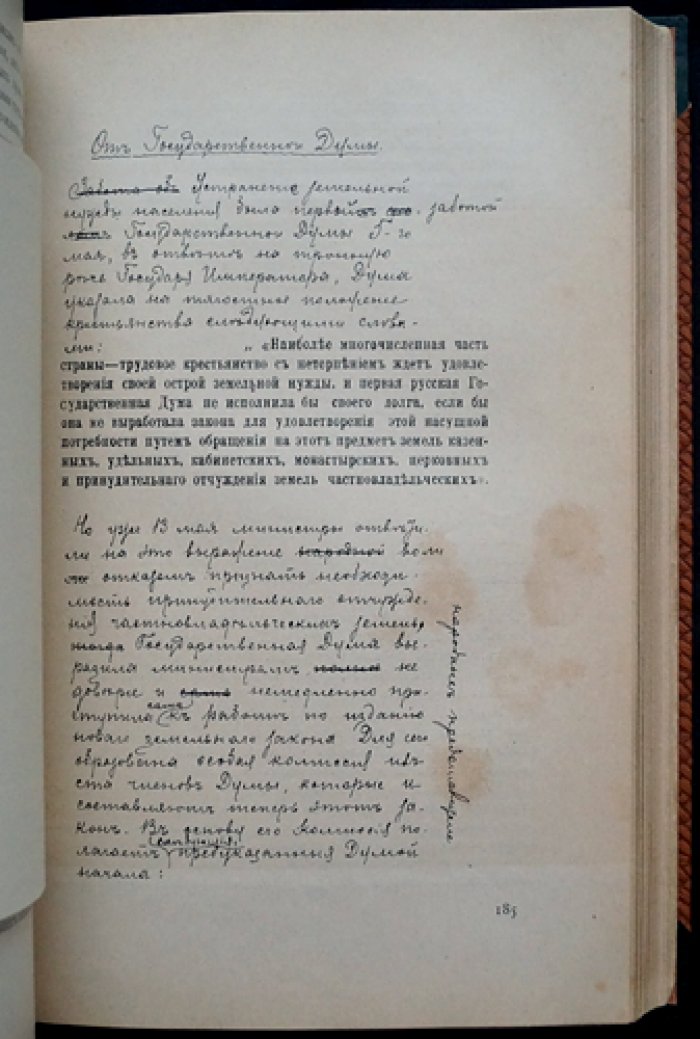 Отъ Государственной Думы.
Забота объ Устраненіе земельной
нужды населенія была первой заботой
Государственной Думы 5-го
мая, въ отвѣтъ на тронную
рѣчь Государя Императора, Дума
указала на тягостное положеніе
крестьянства слѣдующими слова-
ми: „ «Наиболѣе многочисленная часть
страны—трудовое крестьянство съ нетерпѣніемъ ждетъ удовле-
творенія своей острой земельной нужды, и первая русская Го-
сударственная Дума не исполнила бы своего долга, если бы
она не выработала закона для удовлетворенія этой насущной
потребности путемъ обращенія на этотъ предметъ земель казен-
ныхъ, удѣльныхъ, кабинетскихъ, монастырскихъ, церковныхъ
и принудительнаго отчужденія земель частновладѣльческихъ».
Но уже 13 мая министры отвѣти-
ли на это выраженіе народной воли
отказомъ признать необходи-
мость принудительнаго отчужде-
нія частновладѣльческихъ земель,
тогда Государственная Дума вы-
разила министрамъ не
довѣріе и сама немедленно при-
ступила сама къ работѣ по изданію
новаго земельнаго закона Для сего
образована особая комиссія изъ
ста членовъ Думы, которые и
составляютъ теперь этотъ за-
конъ. Въ основу его Комиссія по-
лагаетъ предуказанныя Думой
начала:
185